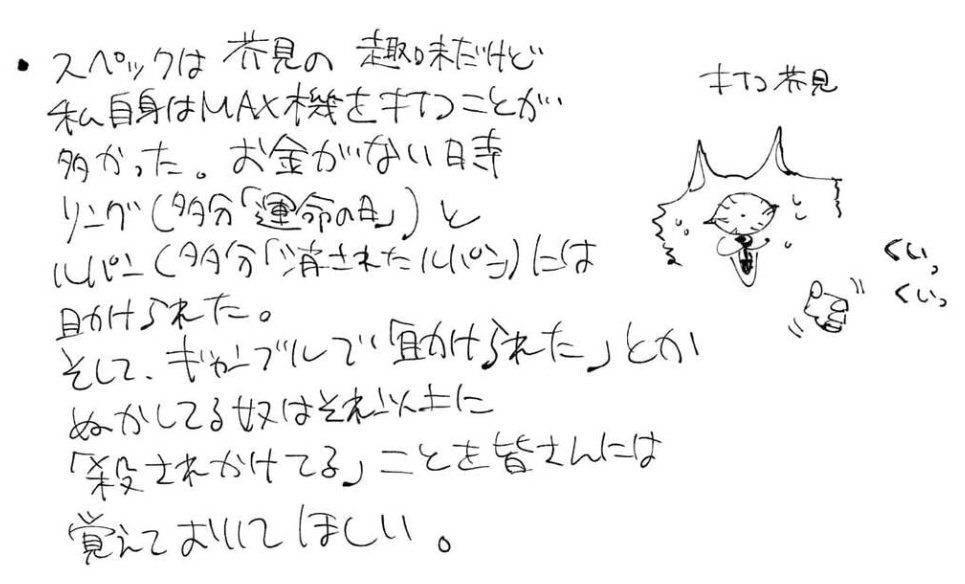 ・スペックは芥見の趣味だけど
私自身はMAX機を打つことが
多かった。お金がない時
リング(多分「運命の日」)と
ルパン(多分「消されたルパン」)には
助けられた。
そして、ギャンブルで「助けられた」とか
ぬかしてる奴はそれ以上に
「殺されかけてる」ことを皆さんには
覚えておいてほしい。
打つ芥見
くいっ
くいっ